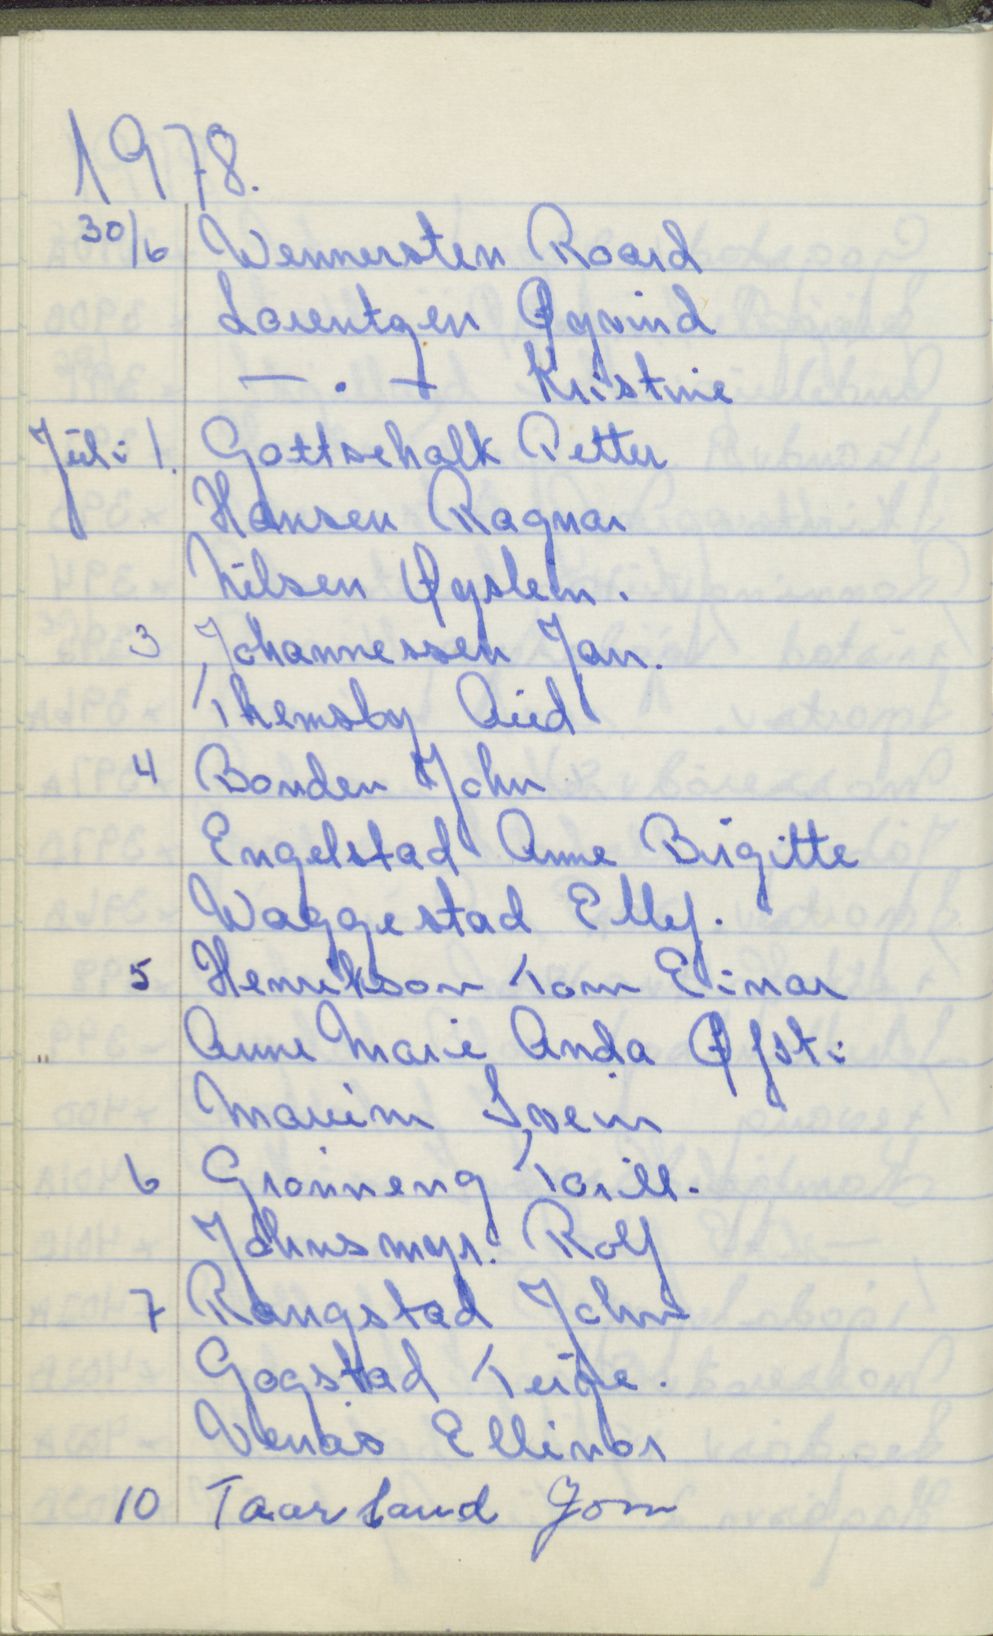 1978.
30/6 Wennersten Roard
Lorentzen Øyvind
— . — Kristine
Juli 1. Gottschalk Petter
Hansen Ragnar
Nilsen Øystein.
3 Johannessen Jan.
Themsby Aud
4 Bonden John
Engelstad Anne Birgitte
Waggestad Elly.
5 Henrikson Tom Einar
" Anne Marie Anda Øfsti
Svein
6 Grønneng Torill.
Johnsmyr. Rolf
7 Rangstad John
Gogstad Terje.
Venås Ellinor
10 Taarland Jom